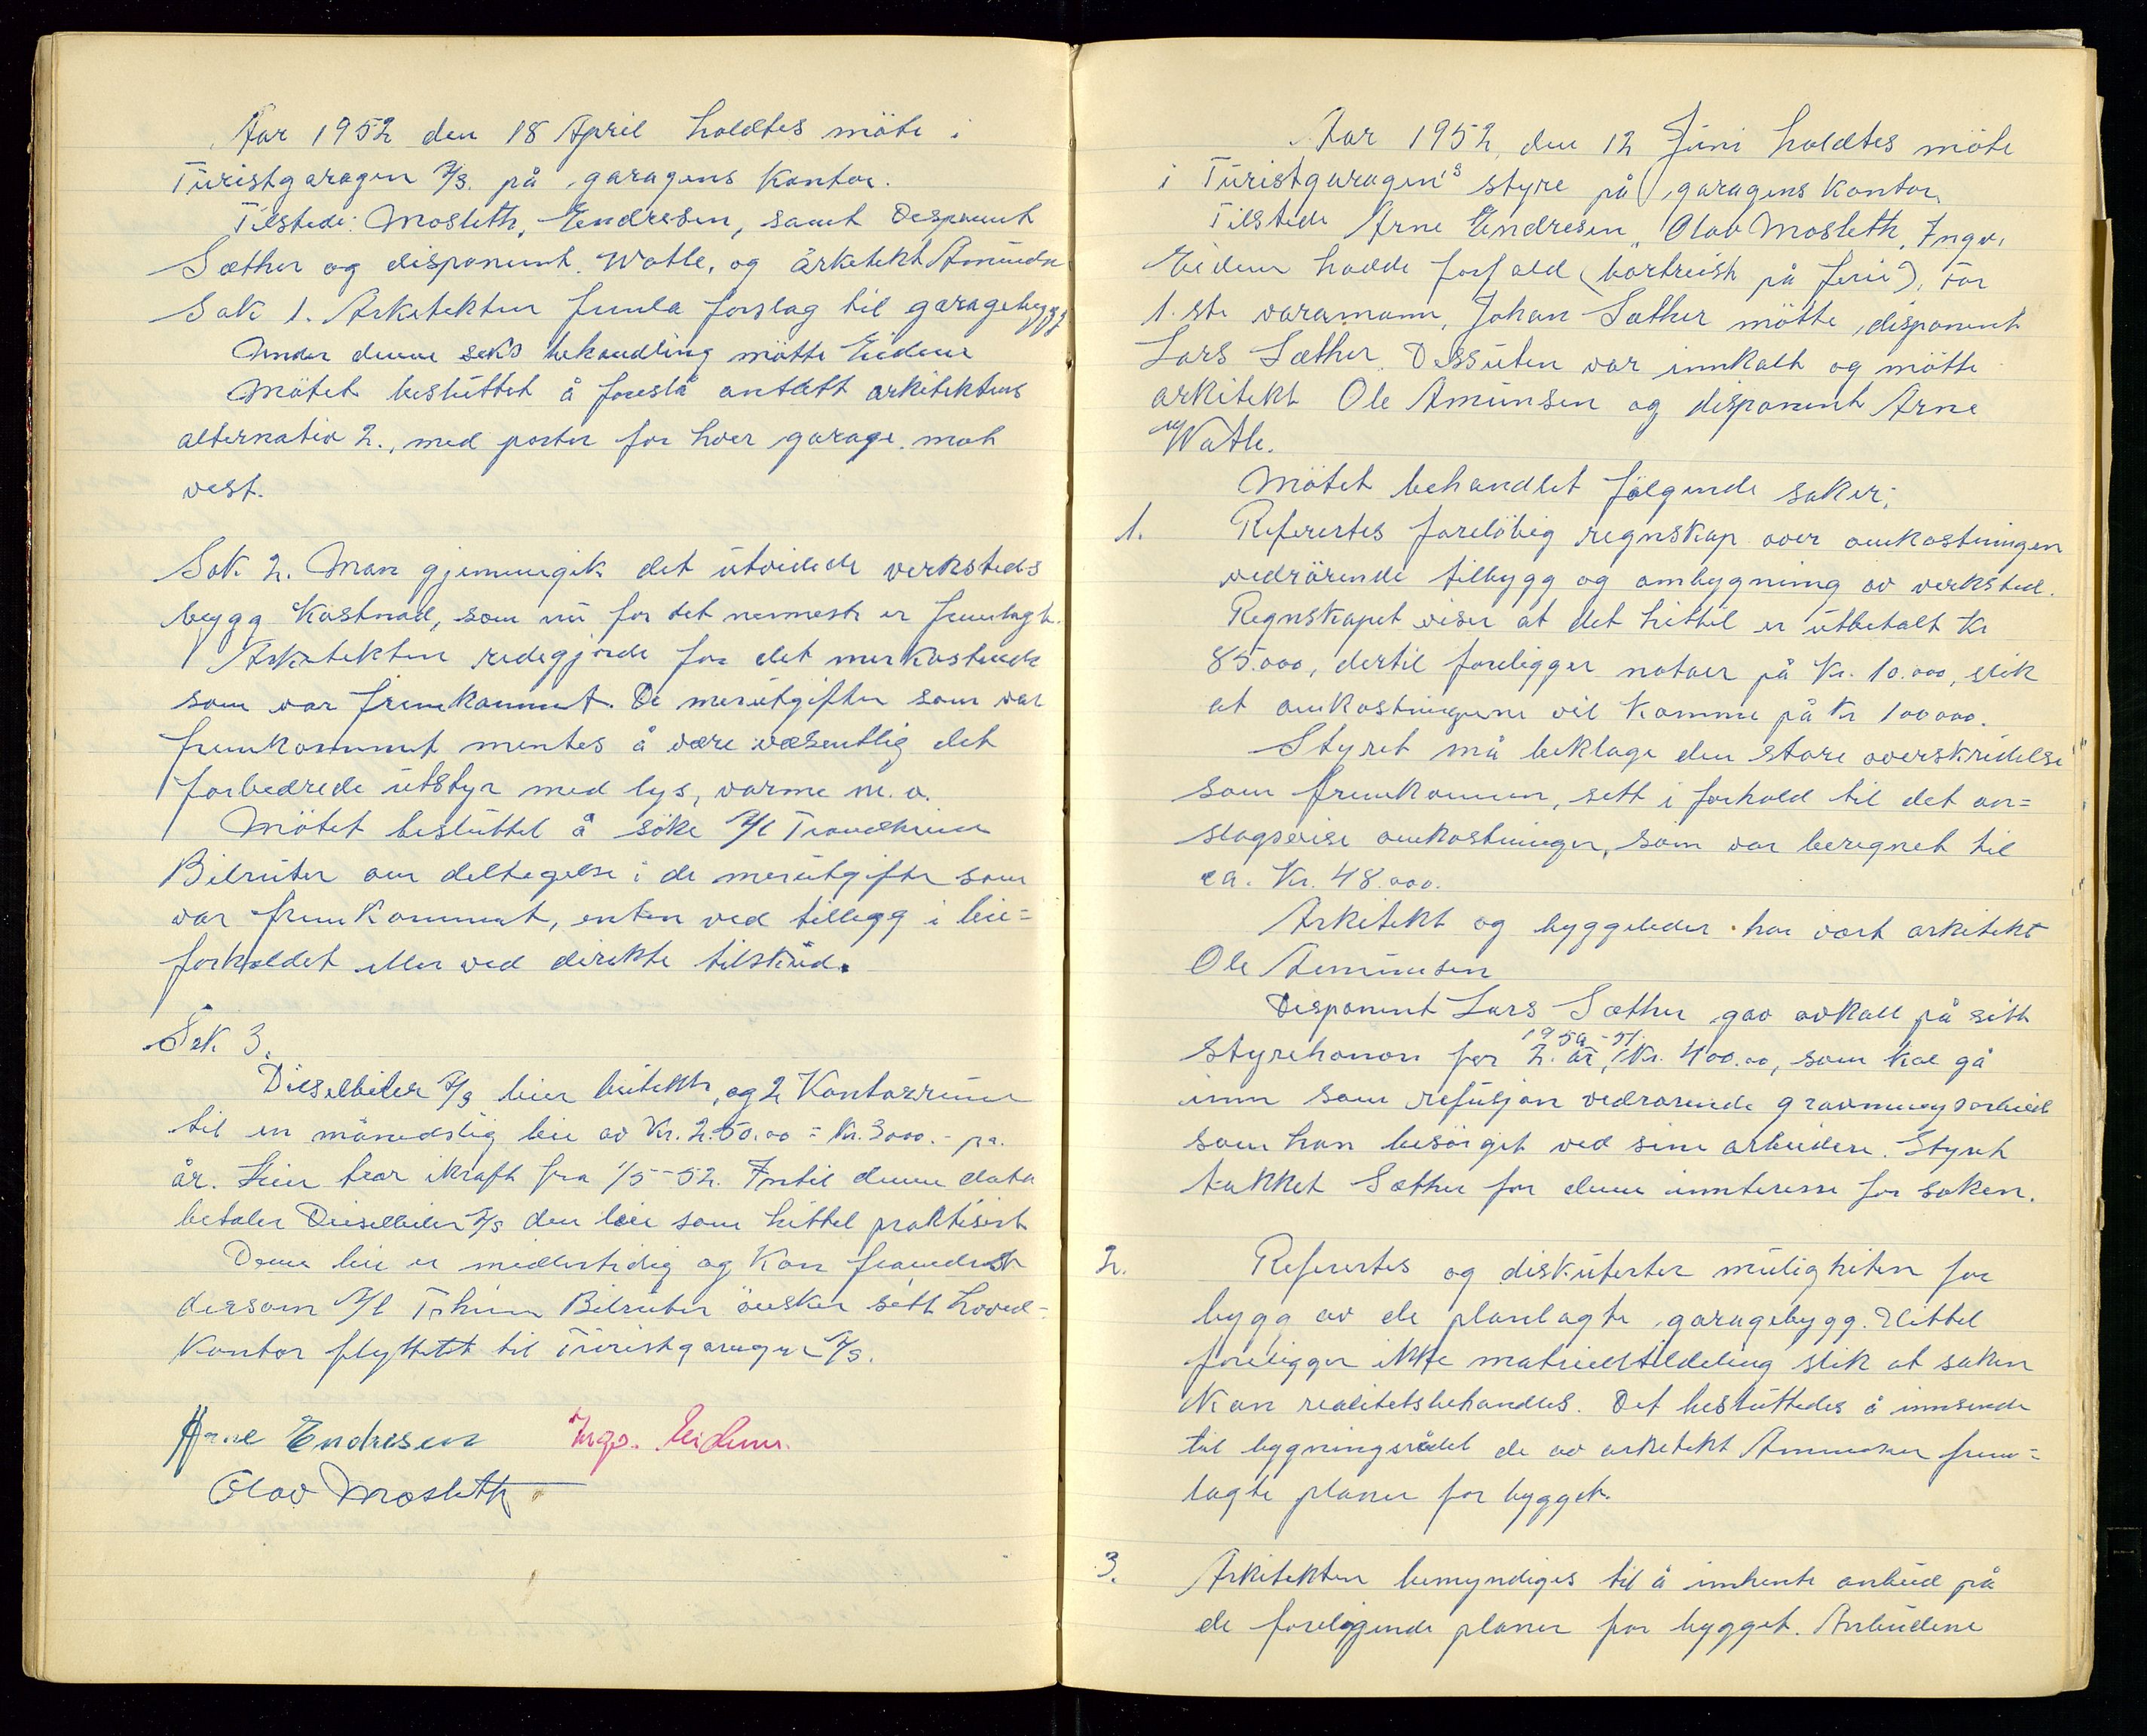 Aar 1952 den 18 April holdtes möte i
Turistgaragen A/S. på garagens Kontor.
Tilstede: Mosleth, Endresen, samt Disponent
Sæther og disponent Watle, og arkitekt Amunds
Sak 1. Arkitekten fremla forslag til garagebygg
Under denne saks behandling mötte Eidem
Mötet besluttet å foreslå antatt arkitektens
alternativ 2., med porter for hver garage mot
vest.
Sak 2. Man gjennemgik det utvidede verksteds
bygg Kostnad, som nu for det nermeste er fremlagt.
Arkitekten redegjorde for det merkostende
som var fremkommet. De merutgifter som var
fremkommet mentes å være væsentlig det
forbedrede utstyr med lys, varme m.v.
Mötet besluttet å söke A/L Trondheim
Bilruter om deltagelse i de merutgifter som
var fremkommet, enten ved tillegg i leie=
forholdet eller ved direkte tilskud.
Sak 3.
Dieselbiler A/S leier butikk, og 2 Kontorrum
til en månedslig leie av Kr. 250.00 = Kr. 3000.- pr.
år. Leien trær ikraft fra 1/5-52. Intil denne dato
betaler Dieselbiler A/S den leie som hittil praktisert
Denne leie er midlertidig og kan forandres
dersom A/L T.heim Bilruter önsker sett hoved=
kontor flyttett til Turistgaragen A/S.
Arne Endresen Ingv. Eidem.
Olav Mosleth
Aar 1952, den 12 Juni holdtes möte
i Turistgaragen's styre på garagens kontor,
Tilstede Arne Endresen, Olav Mosleth, Ingv.
Eidem hadde forfald (bortreist på ferie), For
1.ste varamann, Johan Sæther mötte disponent
Lars Sæther. Dessuten var innkalt og mötte
arkitekt Ole Amunsen og disponent Arne
Watle.
Mötet behandlet fölgende saker;
1. Refertes forelöbig regnskap over omkostningen
vedrörende tilbygg og ombygning av verksted.
Regnskapet viser at det hittil er utbetalt Kr
85.000, dertil foreligger notaer på Kr. 10.000, slik
at omkostningene vil komme på Kr 100000.
Styret må beklage den store overskridelse
som fremkommer, sett i forhold til det an=
slagsvise omkostninger, som var beregnet til
ca. Kr. 48.000.
Arkitekt og byggeleder har vært arkitekt
Ole Amunsen
Disponent Lars Sæther gav avkall på sitt
1950-51
styrehonor for 2. år, Kr. 400.00, som skal gå
inn som refusjon vedrorende gravningsarbeid
som han besörget ved sine arbeidere. Styret
takket Sæther for denne innteresse for saken.
2. Refertes og diskuterter muligheten for
bygg av de planlagte garagebygg. Hittil
foreligger ikke matrieltildeling slik at saken
kan realitetsbehandles. Det besluttedes å innsende
til bygningsrådet de av arkitekt Amunsen frem=
lagte planer for bygget.
3. Arkitekten bemyndiges til å innhente anbud på
de foreligende planer for bygget. Anbudene